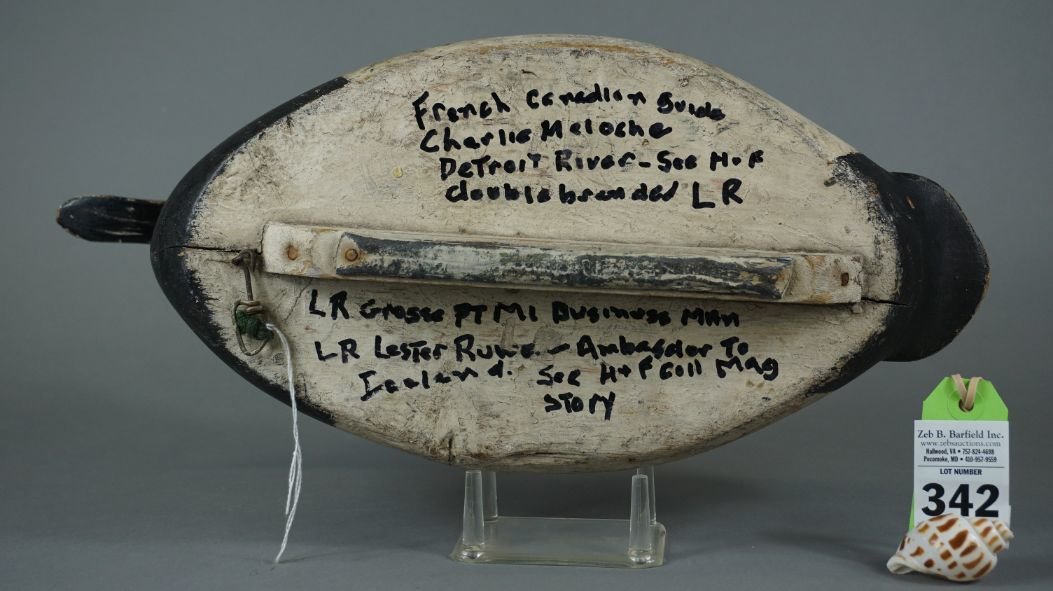 French Canadian Guide
Charlie Meloche
Detroit River - See H+F
double branded LR
LR Grosse PT MI Business MAn
LR Lester Ruwe - Ambasdor To
Iceland. See H+F Coll Mag
STory
Zeb B. Barfield Inc.
www.zebsauctions.com
Hallwood, VA • 757-824-4698
Pocomoke, MD • 410-957-9559
LOT NUMBER
342